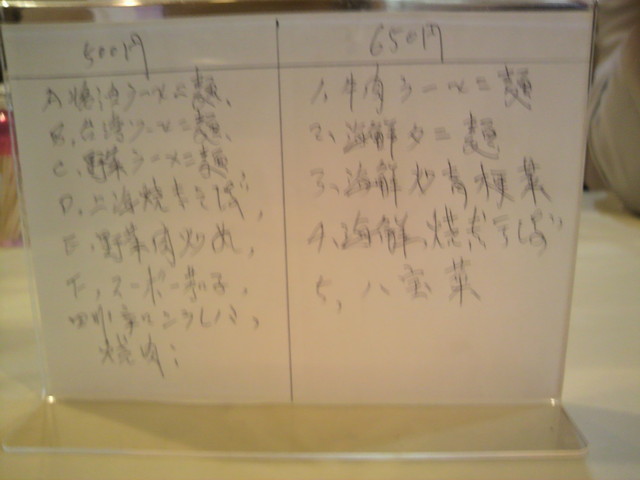 500円
A.醤油ラーメン麺、
B.台湾ラーメン麺、
C.野菜ラーメン麺、
D.上海焼きそば、
E.野菜肉炒め、
F,スーパー茄子、
焼肉;
650円
1、牛肉ラーメン麺
2、海鮮タン麺
3、海鮮炒青梗菜
4、海鮮、焼きそば
5、八宝菜